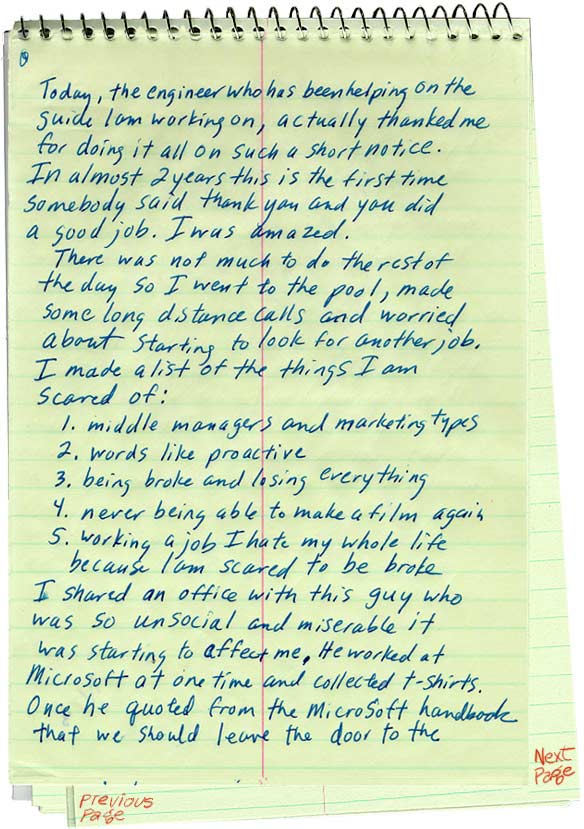 Today, the engineer who has been helping on the
guide I am working on, actually thanked me
for doing it all on such a short notice.
In almost 2 years this is the first time
somebody said thank you and you did
a good job. I was amazed.
There was not much to do the rest of
the day so I went to the pool, made
some long distance calls and worried
about starting to look for another job.
I made a list of the things I am
scared of:
1. middle managers and marketing types
2. words like proactive
3. being broke and losing everything
4. never being able to make a film again
5. working a job I hate my whole life
because I am scared to be broke
I shared an office with this guy who
was so unsocial and miserable it
was starting to affect me. He worked at
Microsoft at one time and collected t-shirts.
Once he quoted from the Microsoft handbook
that we should leave the door to the
Next
Page
Previous
Page